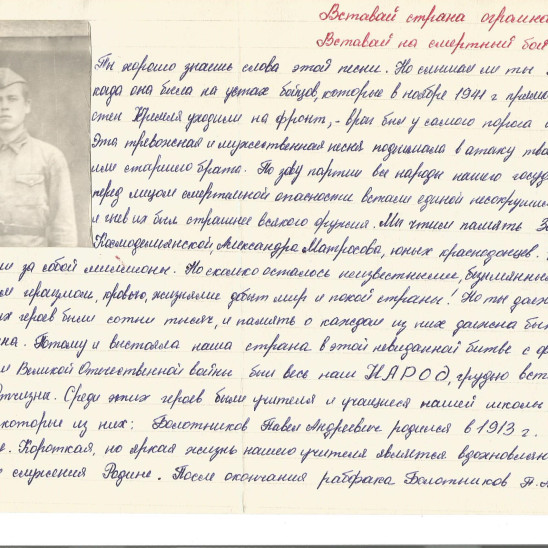 Вставай страна огромна
Вставай на смертный бой
Ты хорошо знаешь слова этой песни. Но слышал ли ты
когда она была на устах бойцов, которые в ноябре 1941 г прямо
стен Кремля уходили на фронт, - враг был у самого порога
Эта тревожная и мужественная песня поднимала в атаку тво
или старшего брата. По зову партии все народы нашего госуд
перед лицом смертельной опасности встали единой несокрушим
и гнев их был страшнее всякого оружия. Мы чтим память З
Космодемьянской, Александра Матросова, юных краснодонцев.
ли за собой миллионы. Но сколько осталось неизвестными, безымянны
героизмом, кровью, жизнями добыт мир и покой страны! Но ты долж
их героев были сотни тысяч, и память о каждом из них должна бы
на. Потому и выстояла наша страна в этой невиданной битве с ф
и Великой Отечественной войны был весь наш НАРОД, грудью вст
Отчизны. Среди этих героев были учителя и учащиеся нашей школы
которые из них: Болотников Павел Андреевич родился в 1913 г.
е. Короткая, но яркая жизнь нашего учителя является вдохновля
служения Родине. После окончания рабфака Болотников П.А